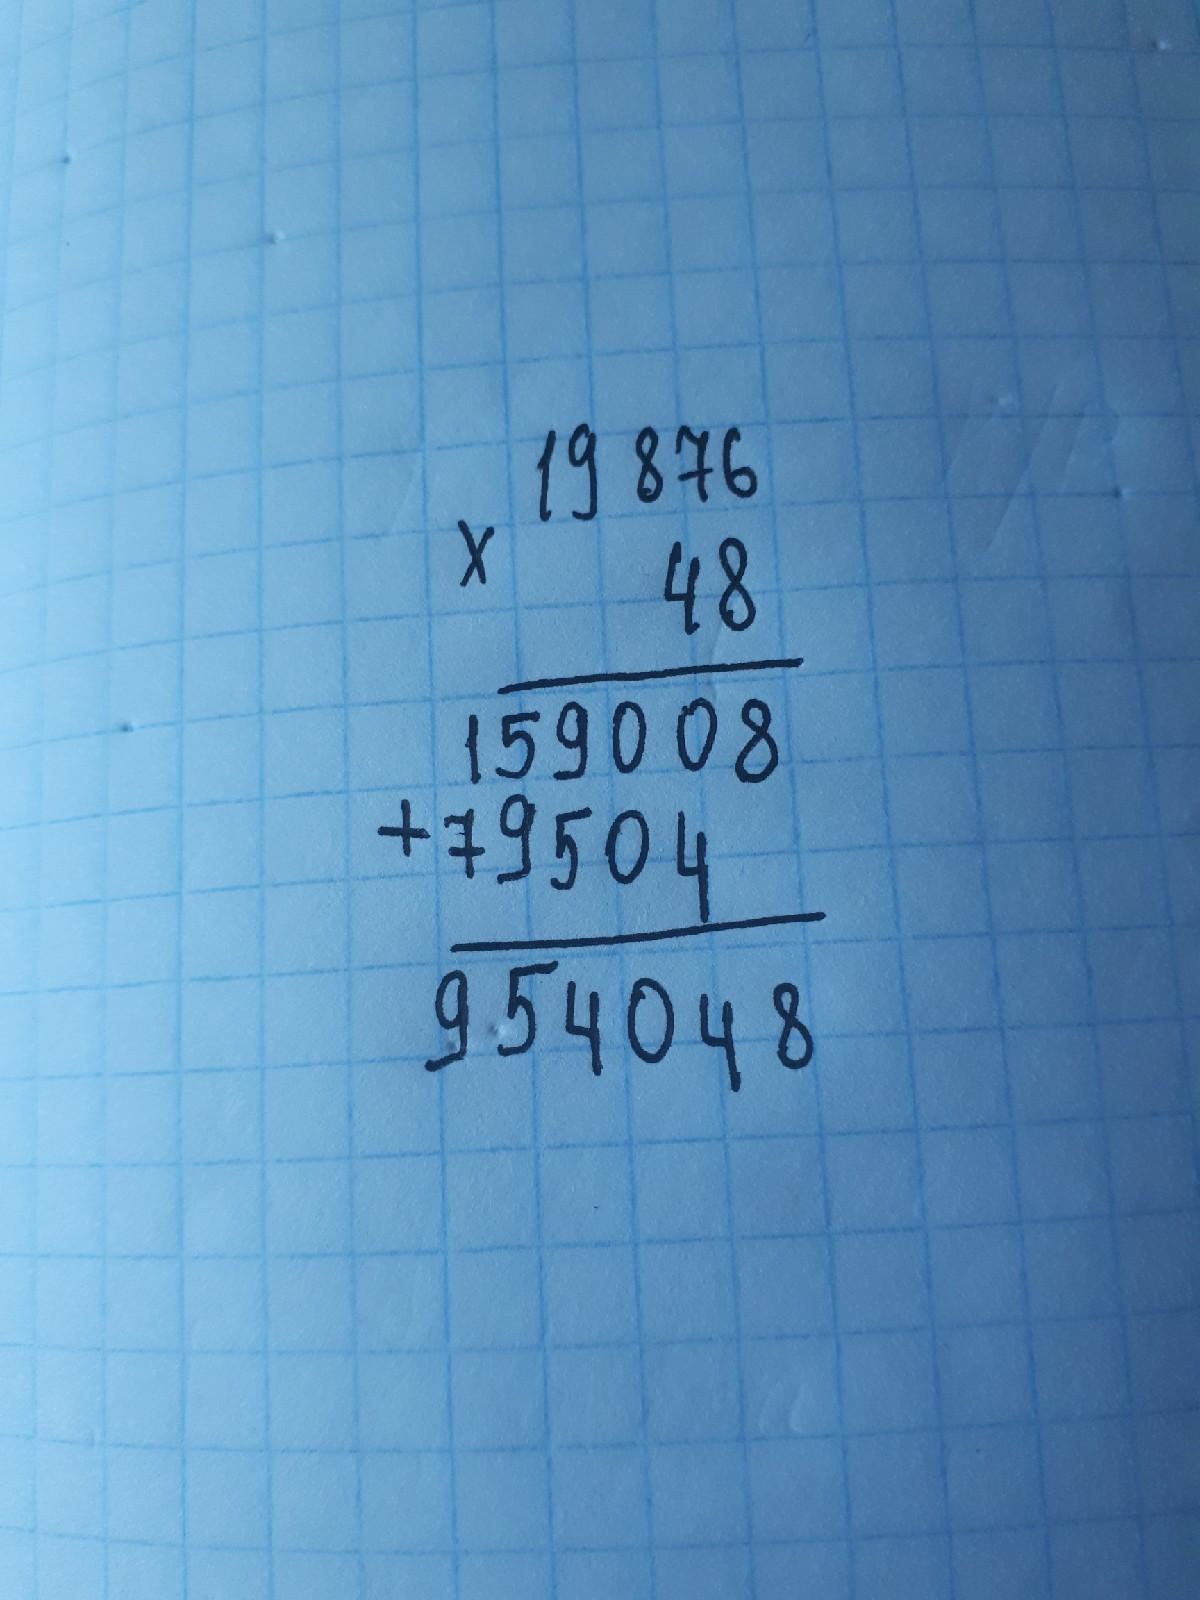 19 876
x 48
159008
+79504
954048